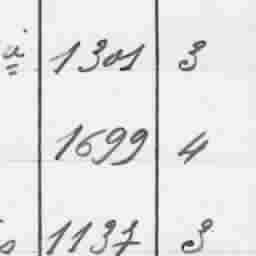 1301 3
1699 4
1137 3